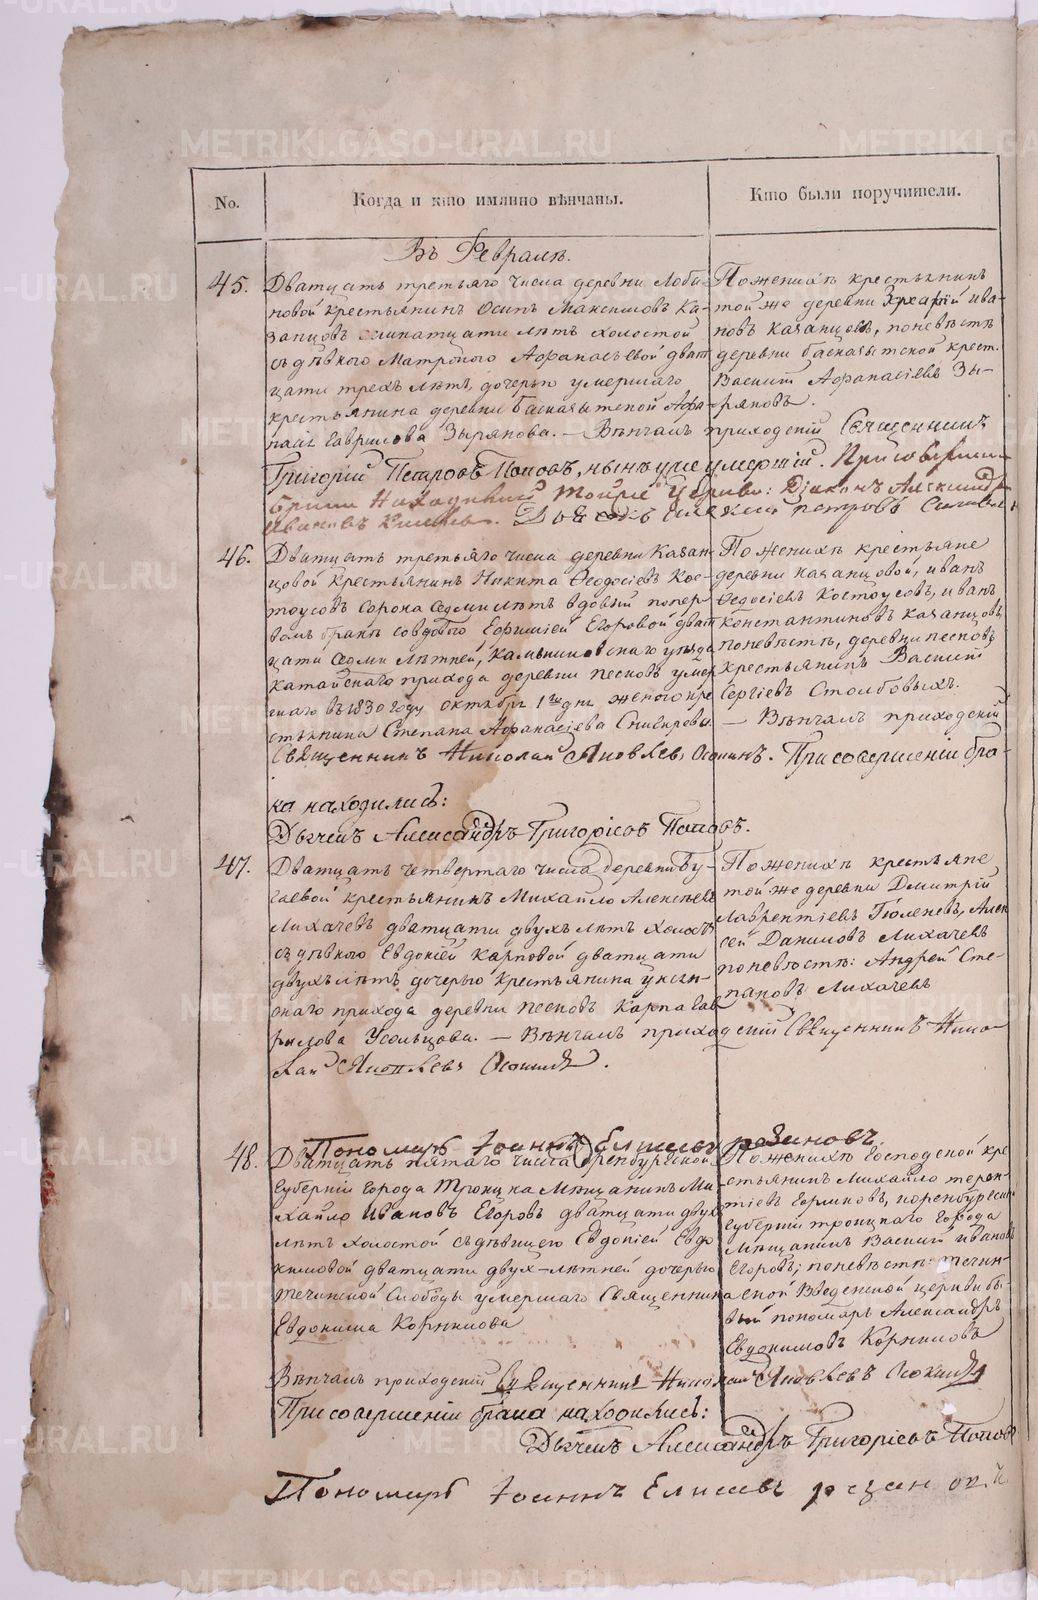 No.
Когда и кто имянно вѣнчаны.
Кто были поручители.
Въ Февралѣ.
45.
Дватцать третьяго числа деревни Лоби-
новой крестьянинъ Осипъ Максимовъ Ка-
занцовъ семнатцати лѣтъ холостой
съ дѣвкою Матроною Афонасьевой дват
цати трехъ лѣтъ, дочерью умершаго
крестьянина деревни Баскатытской Афо-
насія Гаврилова Зырянова. — Вѣнчалъ приходскій Священникъ
Григорій Петровъ Поповъ, нынѣ уже умершій. При соверше
Брака Находился Той же Церкви: Діаконъ Александръ
Ивановъ
По женихѣ крестьянинъ
той же деревни ива-
новъ Казанцовъ, по невѣстѣ
деревни крест.
Василій Афанасіевъ Зы-
ряновъ.
46.
Дватцать третьяго числа деревни Казан-
цовой крестьянинъ Никита Ѳеодосіевъ Кос-
тоусовъ сорока седми лѣтъ вдовый по пер-
вомъ бракѣ со вдовою Ефиміей Егоровой дват
цати седми лѣтней, Камышловскаго уѣзда
катайскаго прихода деревни Песковъ умер
шаго въ 1830 году октября 1го дня женою кре
стьянина Степана Афанасіева Снигирева.
Священникъ Николай Яковлевъ Осокинъ. При совершеніи бра-
ка находились:
Дьячекъ Александръ Григоріевъ Поповъ.
По женихѣ крестьяне
деревни Казанцовой, иванъ
Ѳедосіевъ Костоусовъ, иванъ
Константиновъ Казанцовъ,
по невѣстѣ, деревни песковъ
крестьянинъ Василій
Сергіевъ Столбовыхъ.
— Вѣнчалъ приходскій
47.
Дватцать четвертаго числа деревни Бу-
гаевой крестьянинъ Михайло Алексѣевъ
Лихачевъ дватцати двухъ лѣтъ холост
съ дѣвкою Евдокіей Карповой дватцати
двухъ лѣтъ дочерью крестьянина уксян-
скаго прихода деревни песковъ Карпа Гав
рилова Усольцова. — Вѣнчалъ приходскій Священникъ Нико-
лай Яковлевъ Осокинъ.
По женихѣ крестьяне
той же деревни Дмитрій
Лаврентіевъ Тюленевъ, Алек
сей Даниловъ Лихачевъ
по невѣстѣ: Андрей Сте-
пановъ Лихачевъ
Пономарь Іоаннъ Елисеевъ резановъ.
48.
Дватцать пятаго числа Оренбургской
Губерніи Города Троицка Мѣщанинъ Ми-
хайло Ивановъ Егоровъ дватцати двухъ
лѣтъ холостой съ дѣвицею Евдокіей Евдо
кимовой дватцати двух-лѣтней дочерью
течинской Слободы умершаго Священника
Евдокима Корнилова
По женихѣ Господской кре
стьянинъ Михайло терен-
тіевъ оренбургской
Губерніи троицкаго города
Мѣщанинъ Василій ивановъ
Егоровъ; по невѣстѣ: течин-
ской Введенской церкви бы-
вый пономарь Александръ
Евдокимовъ Корниловъ
Вѣнчалъ приходскій Священникъ Николай Яковлевъ Осокинъ
При совершеніи брака находились:
Дьячекъ Александръ Григоріевъ Поповъ
Пономарь Іоаннъ Елисеевъ резановъ